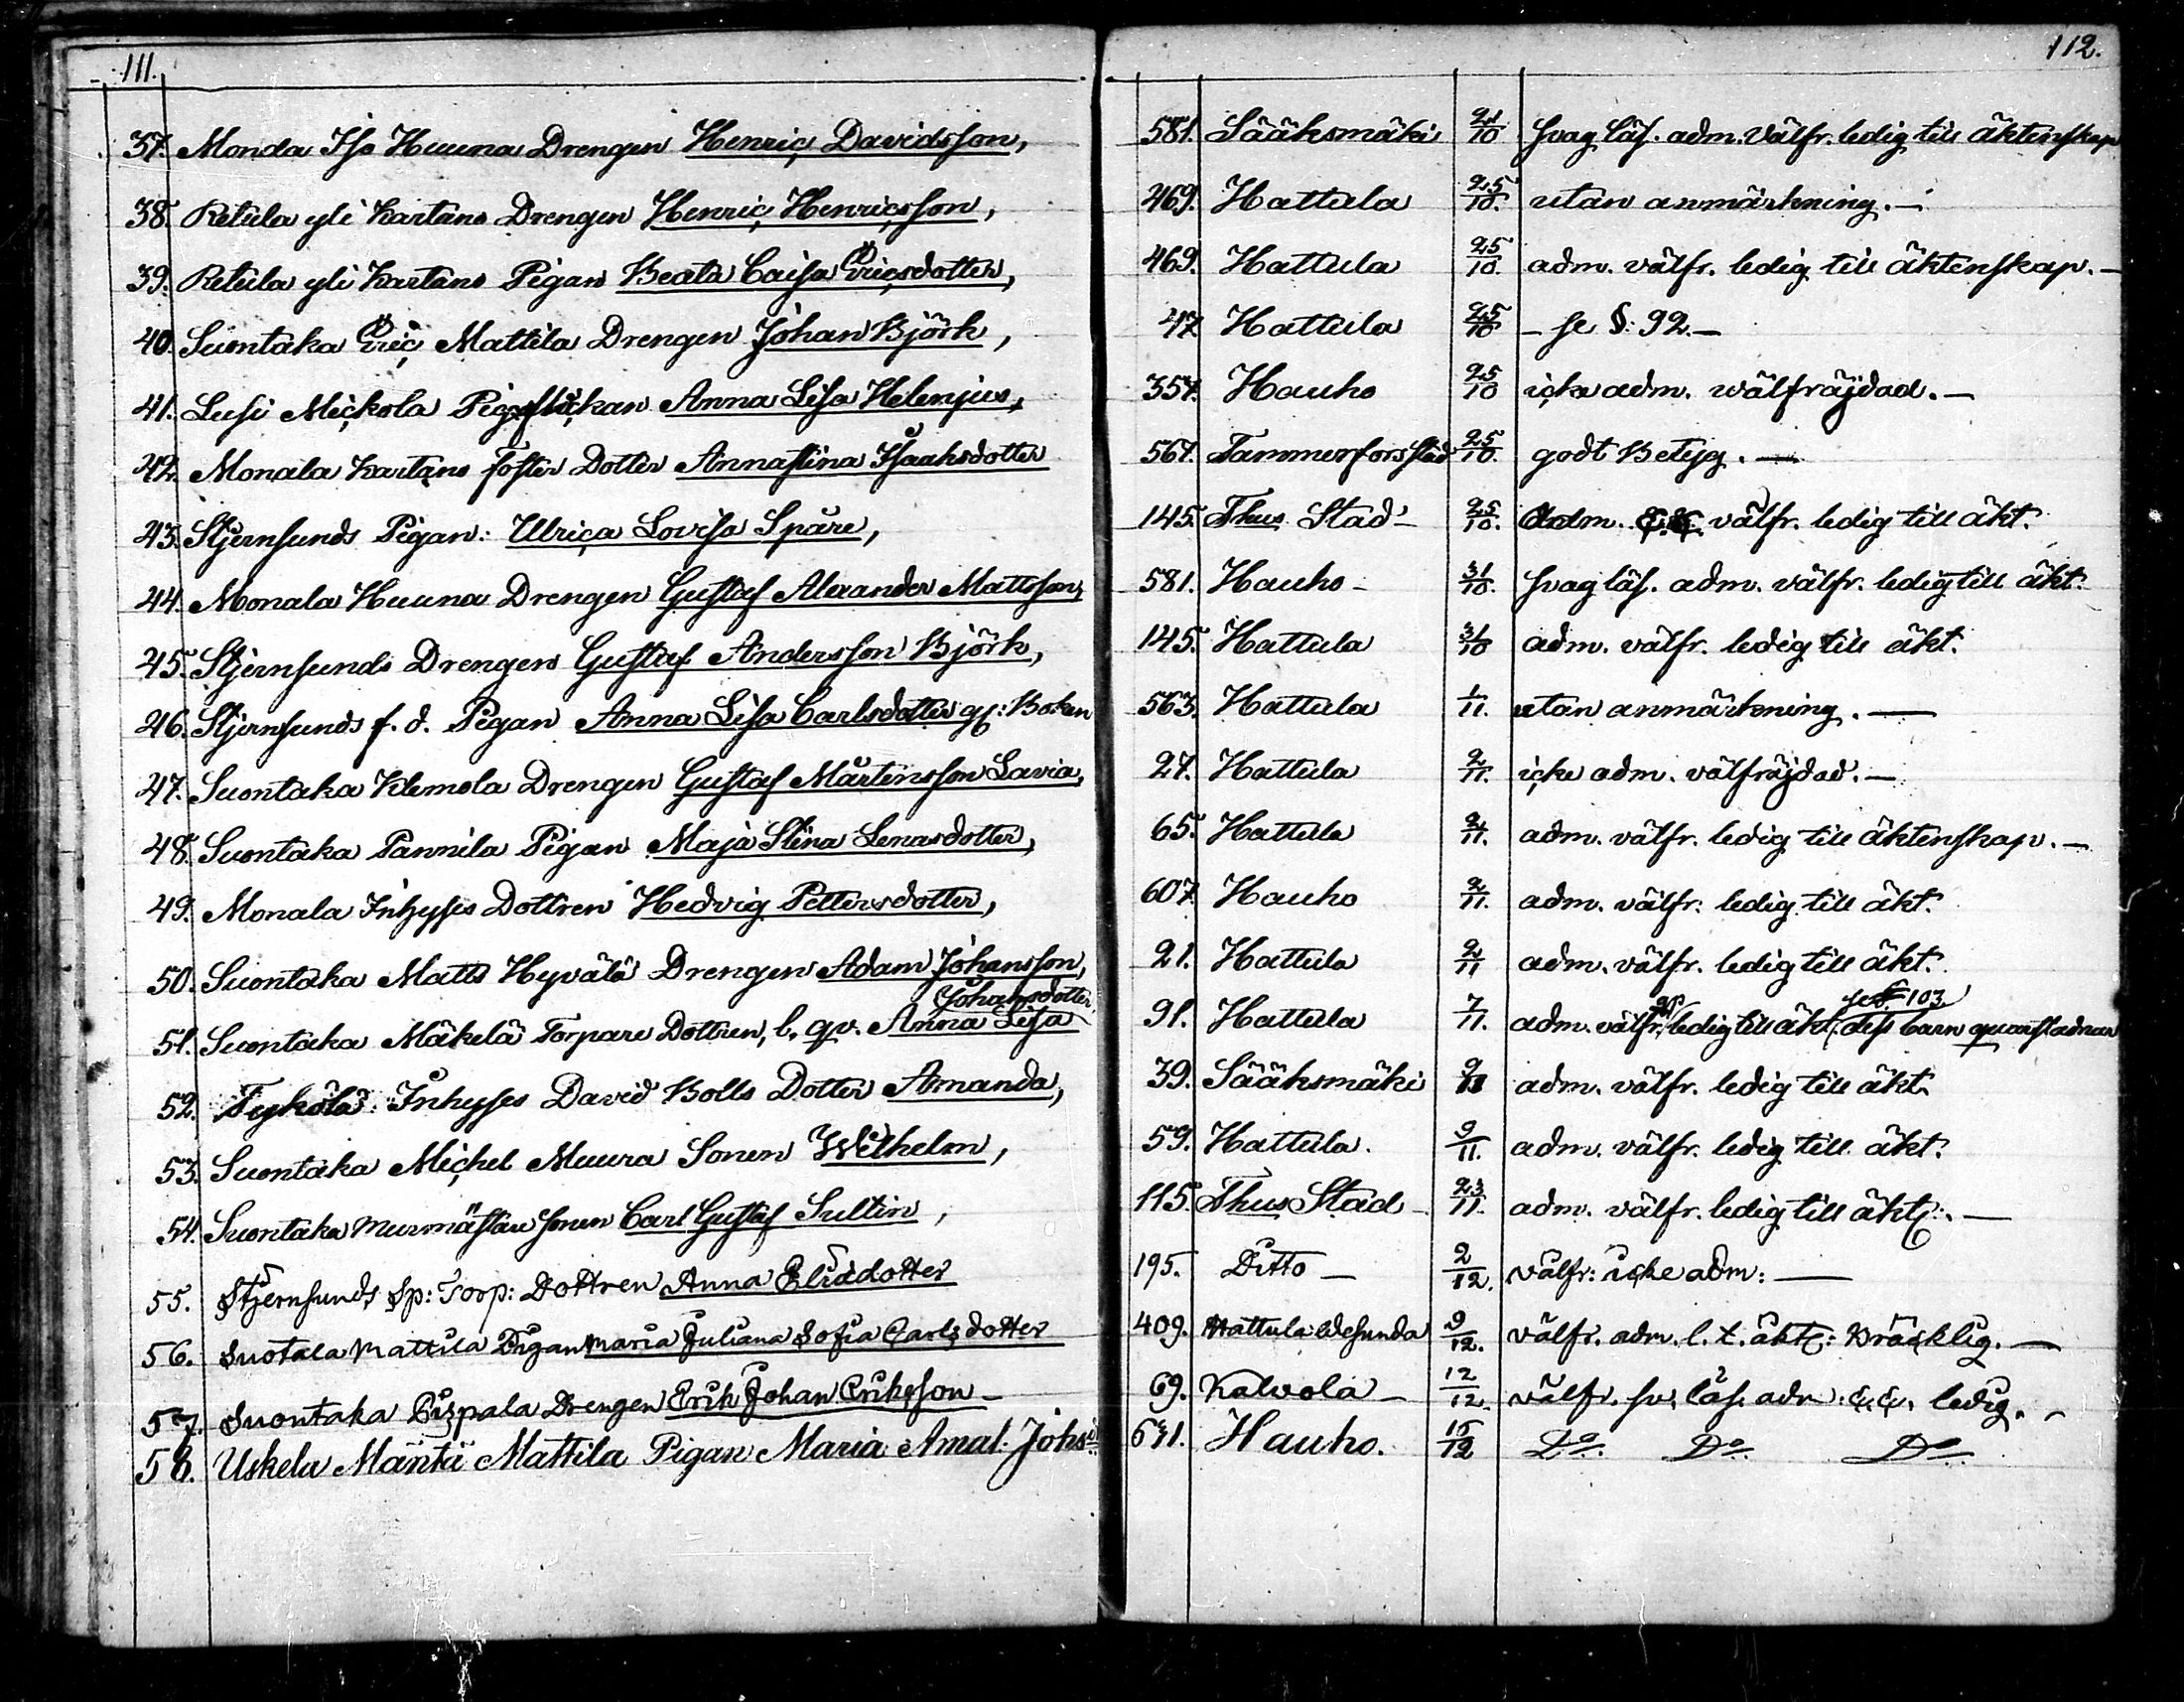 111.
37. Monda Iso Huuna Drengen Henric Davidsson,
38. Retula yli Kartano Drengen Henric Henricsson,
39. Retula yli Kartano Pigan Beata Caisa Ericsdotter,
40. Suontaka Eric Mattila Drengen Johan Björk,
41. Lusi Mickola Pigflickan Anna Lisa Helenius,
42. Monala Kartano foster Dotter Annastina Isaaksdotter
43. Stjernsunds Pigan: Ulrica Lovisa Spåre,
44. Monala Huuna Drengen Gustaf Alexander Mattsson,
45. Stjernsunds Drengen Gustaf Andersson Björk,
46. Stjernsunds f. d. Pigan Anna Lisa Carlsdotter
47. Suontaka Klemola Drengen Gustaf Mårtensson Lavia,
48. Suontaka Pannila Pigan Maja Stina Lenasdotter,
49. Monala Inhyses Dottren Hedvig Pettersdotter,
50. Suontaka Matts Hyvälä Drengen Adam Johansson,
Johansdotter
51. Suontaka Mäkelä Torpare Dottren, b. qv. Anna Lisa
52. Tykölä Inhyses David Bolls Dotter Amanda,
53. Suontaka Michel Muura Sonen Wilhelm,
54. Suontaka Murmästare sonen Carl Gustaf Sultin,
55. Stjernsunds Sp: Torp: Dottren Anna Elisdotter
56. Suotaca Mattila Pigan Maria Juliana Sofia Carlsdotter
57. Suontaka Pispala Drengen Erik Johan Eriksson
58. Uskela Mäntä Mattila Pigan Maria Amal. Johsd
112.
581. Sääksmäki 21/10 svag läs. adm. välfr. ledig till äktenskap
469. Hattula 25/10. utan anmärkning.—
469. Hattula 25/10. adm. välfr. ledig till äktenskap.—
47 Hattula 25/10 — se §: 92.—
357. Hauho 25/10 icke adm. wälfräjdad.—
567. Tammerfors Stad 25/10. godt Betyg.—
145. Thus Stad 25/10. Adm. &.&. välfr. ledig till äkt.
581. Hauho 31/10. svag läs. adm. välfr. ledig till äkt.
145. Hattula 31/10 adm. välfr. ledig till äkt.
563. Hattula 1/11. utan anmärkning.—
27. Hattula 2/11. icke adm. välfräjdad.—
65. Hattula 2/11. adm. välfr. ledig till äktenskap.—
607. Hauho 2/11. adm. välfr. ledig till äkt.
21. Hattula 2/11 adm. välfr. ledig till äkt.
se § 103
91. Hattula 7/11. adm. välfr. ledig till äkt. dess barn qvarstadnar
39. Sääksmäki 9/11 adm. välfr. ledig till äkt.
59. Hattula. 9/11. adm. välfr. ledig till äkt.
115. Thus Stad 23/11. adm. välfr. ledig till äkt:.—
195. Ditto — 2/12. välfr: icke adm:—
409. Hattula Idesunda 9/12. välfr. adm. l. t. äkt: Bräcklig.—
69. Kalvola — 12/12. välfr. sv. läs. adm: &.&. ledig.
691. Hauho. 15/12 Do. Do. Do.